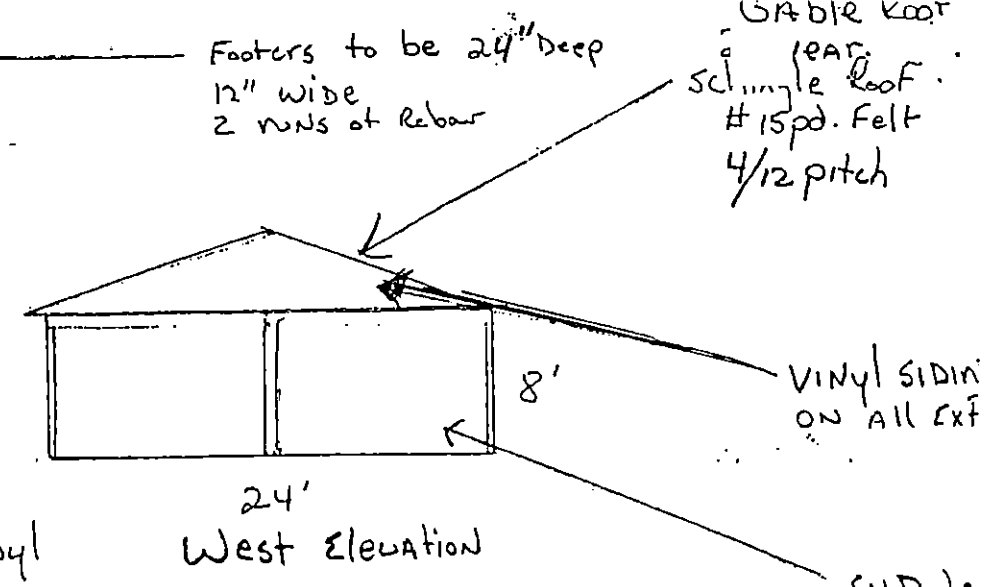 Footers to be 24" Deep
12" wide
2 runs of Rebar
Gable Roof
Roof.
#15pd. Felt
4/12 pitch
8'
Vinyl
on All
24'
West Elevation